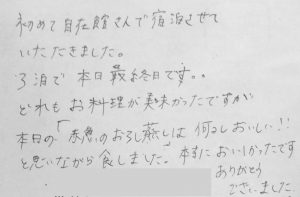 初めて自在館さんで宿泊させて
いただきました。
3泊で本日最終日です。。
どれもお料理が美味かったですが
本日の「赤魚のおろし蒸しは 何るしおいしい!!
と思いながら食しました。本当においしかったです
ありがとう
ございました